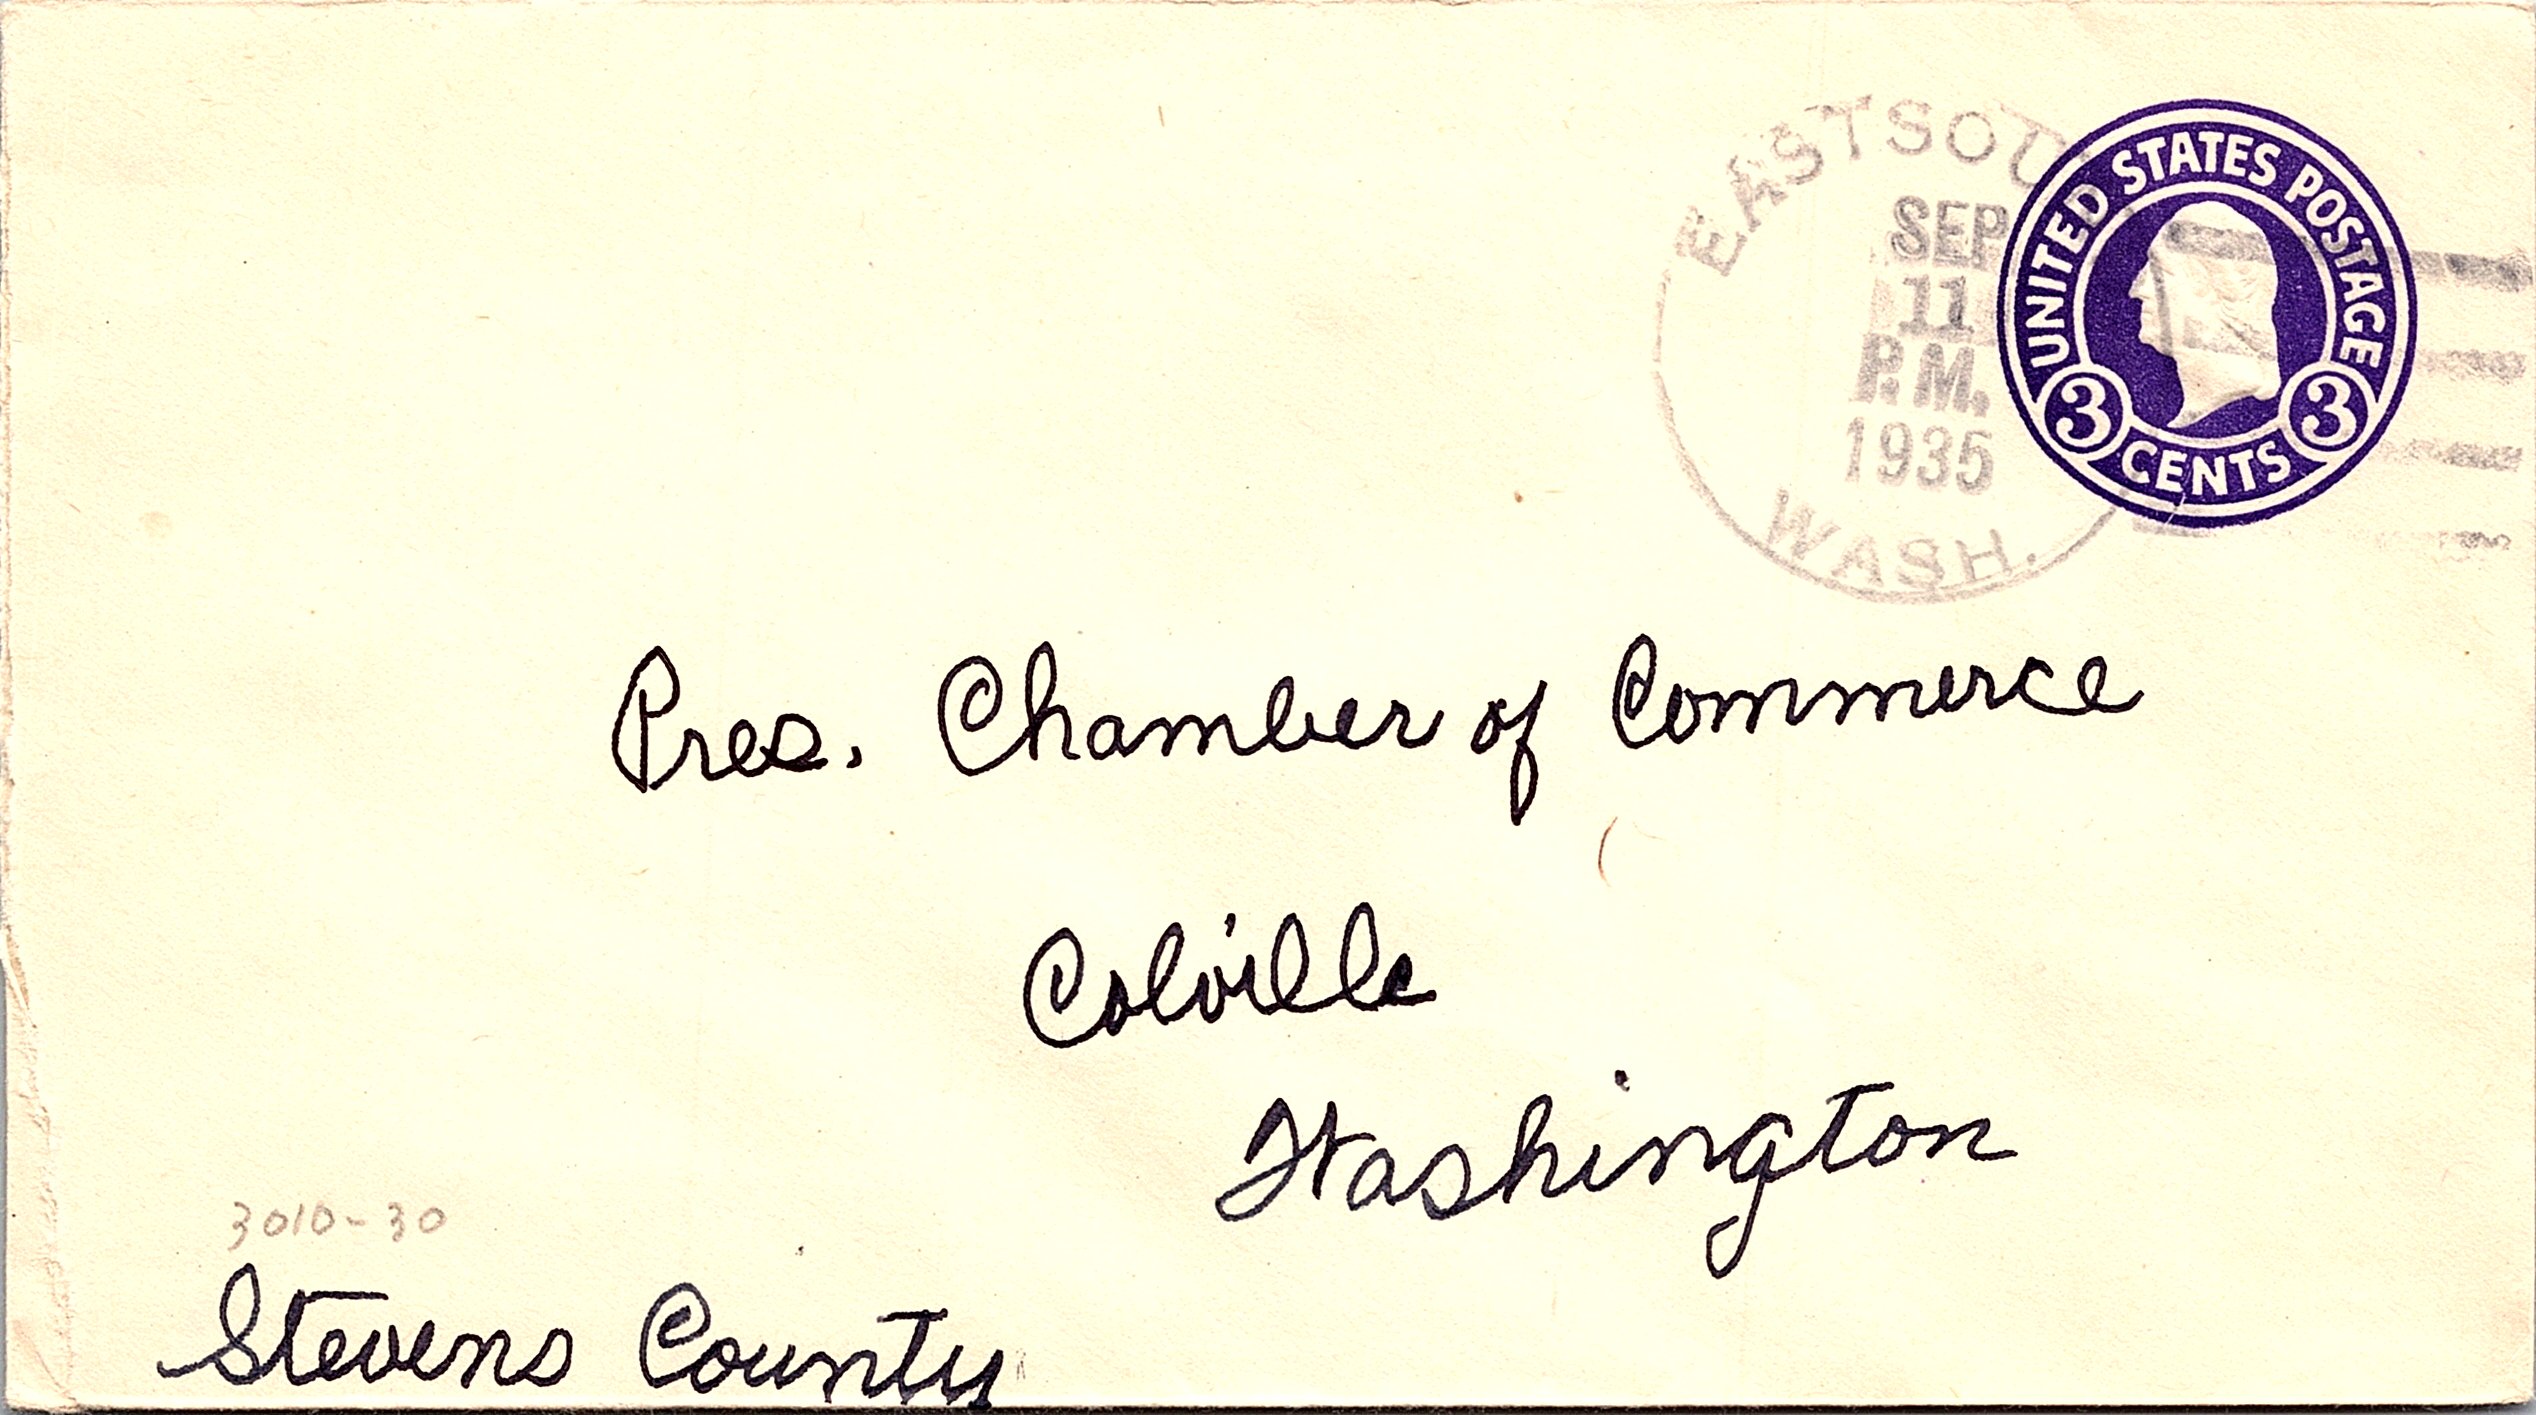 EASTSOU
SEP
11
P.M.
1935
WASH.
UNITED STATES POSTAGE
3 CENTS 3
Pres. Chamber of Commerce
Colville
Washington
3010-30
Stevens County